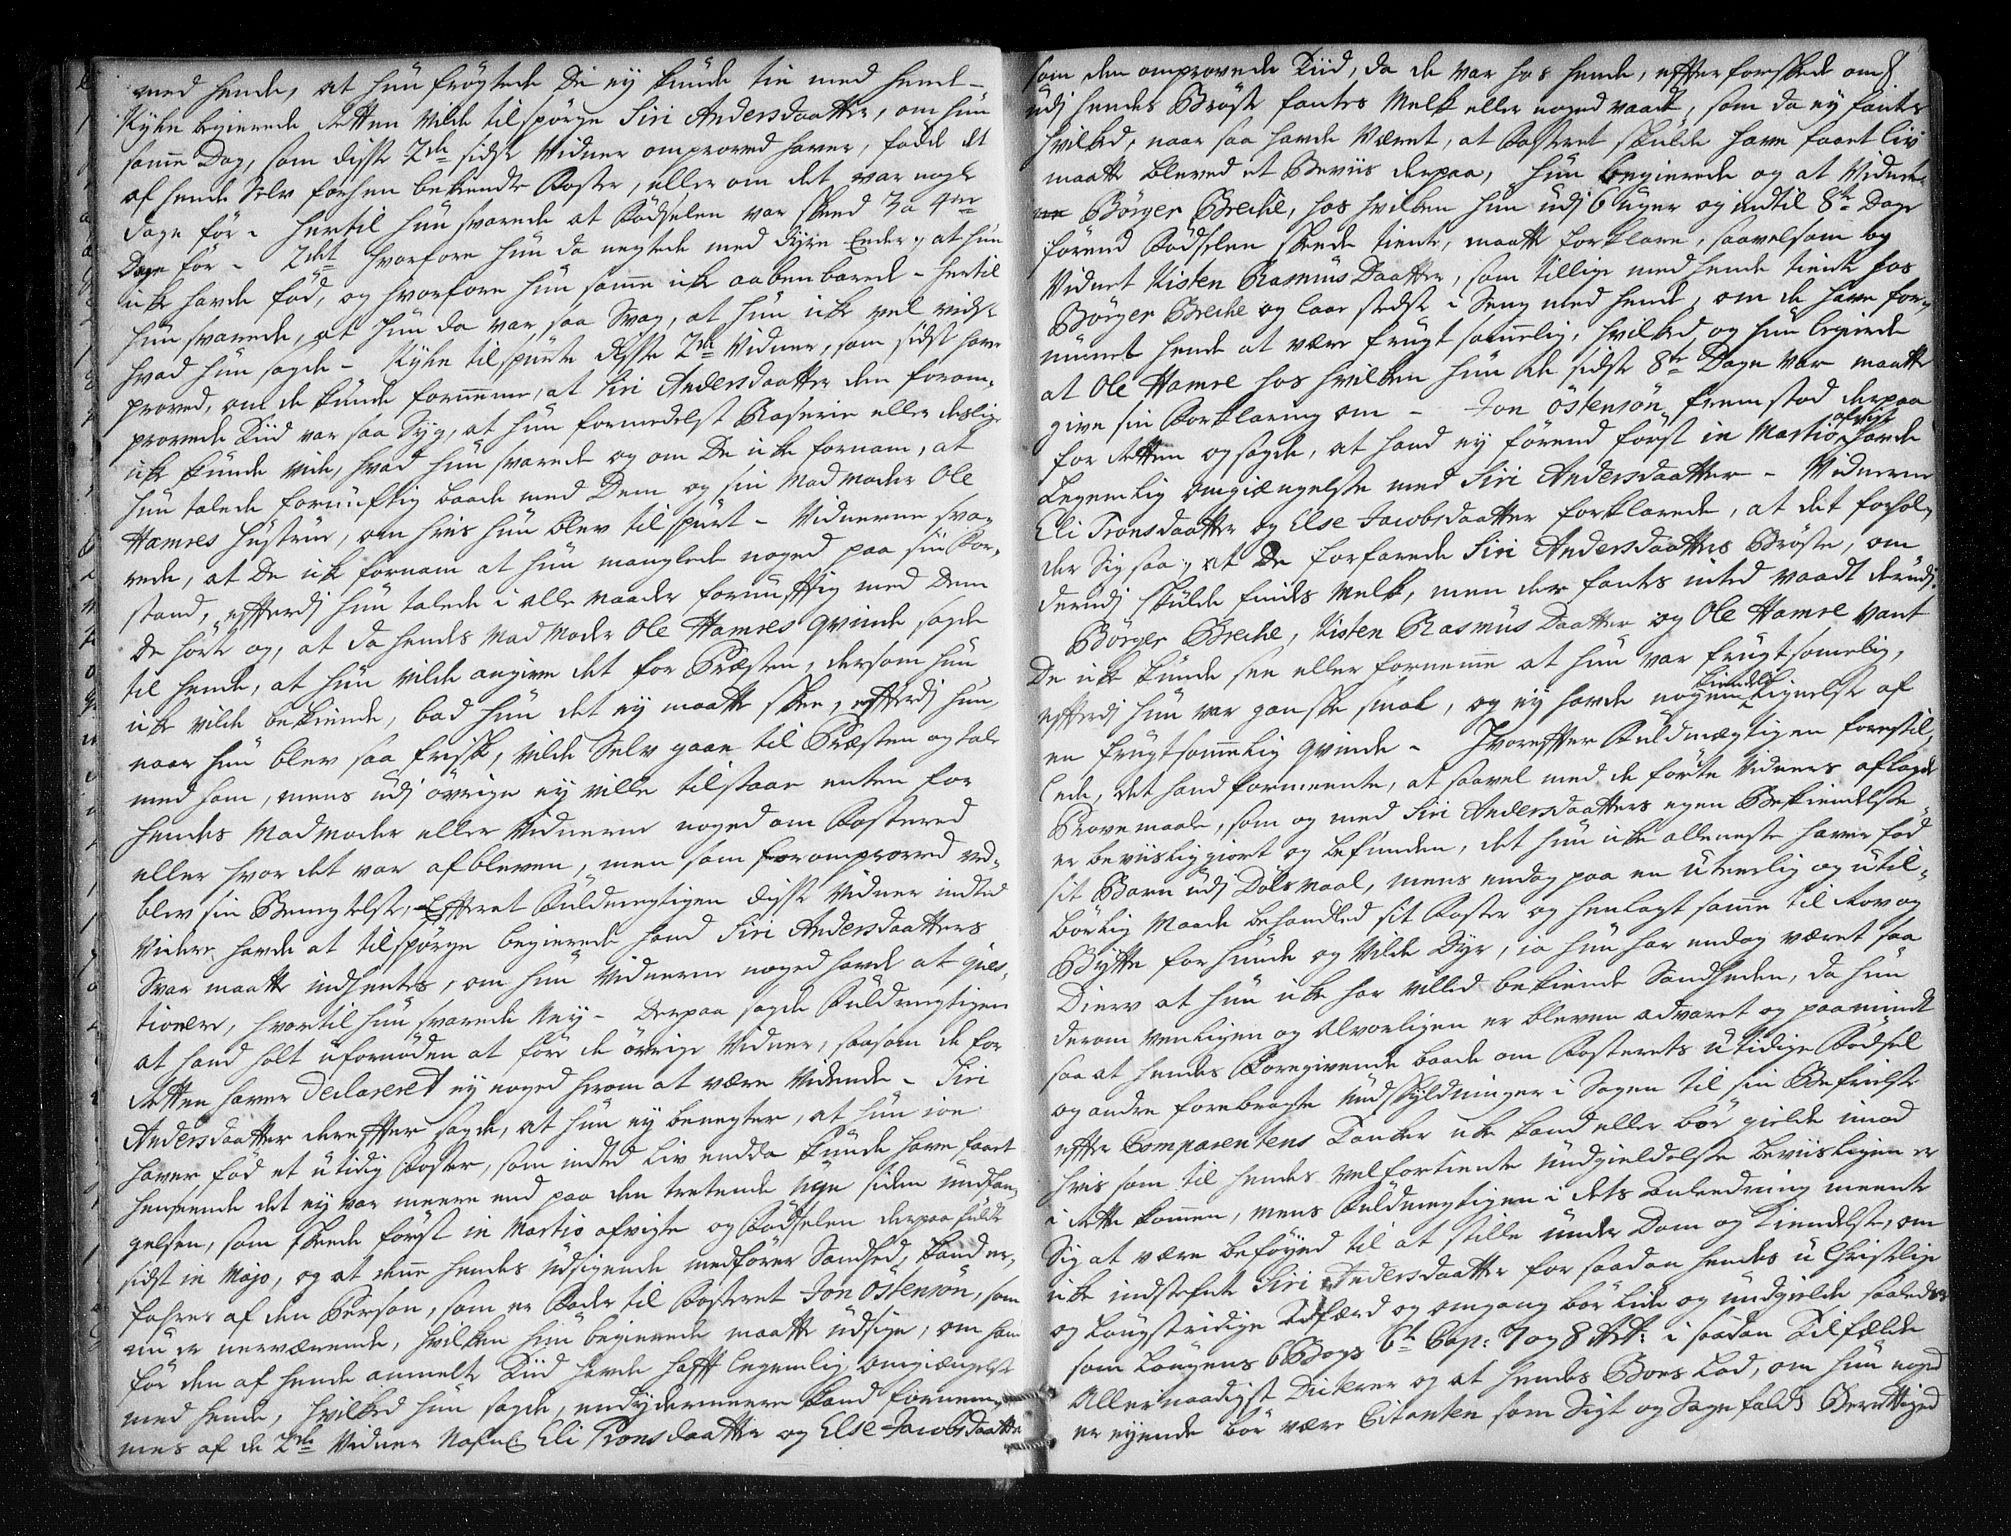 med hende, at hun frögtede De ey kunde tie med hend-
Kyhn begierede Retten vilde tilspörge Siri Andersdaatter, om hun
samme Dag, som disse 2de sidste Vidner omproved haver, född det
af hende Selv forhen bekiendte Foster, eller om det var nogle
dage för. hertil hun svarede at Födselen var skeed 3 a 4re
Dage för - 2det hvorfore hun da negtede med dyre Eeder, at hun
icke havde fød, og hvorfore hun samme icke aabenbarede - hertil
hun svarede, at hun da var saa Svag, at hun icke vel vidste
hvad hun sagde - Kyhn tilspurte disse 2de Vidner, som sidst have
proved, om de kunde fornemme, at Siri Andersdaatter den forom-
provede Tiid var saa Syg, at hun formedelst Raserie eller deslige
icke kunde vide, hvad hun svarede og om De icke fornam, at
hun talede fornuftig baade med Dem og sin Madmoder Ole
Hamres Hustrue, om hvis hun blev tilspurt - Vidnerne sva-
rede, at De icke fornam at hun manglede noged paa sin For-
stand, efterdj hun talede i alle maader fornuftig med Dem
De hörte og, at da hendes Madmoder Ole Hamres Qvinde sagde
til hende, at hun vilde angive det for Præsten, dersom hun
icke vilde bekiende, bad hun det ey maatte skee, efterdj hun,
naar hun blev saa frisk, vilde Selv gaae til Præsten og tale
med ham, mens udj övrige ey ville tilstaae enten for
hendes Madmoder eller Vidnerne noged om Fostered
eller hvor det var afbleven, men som foromproved ved-
blev sin Benegtelse, Efterat Fuldmegtigen disse Vidner indted
Videre havde at tilspörge begierede hand Siri Andersdaatters
Svar maatte indhentes, om hun Vidnerne noged havde at qves-
tionere, hvortil hun svarede Ney - Derpaa sagde Fuldmegtigen
at hand holt ufornöden at före de övrige Vidner, saasom de for
Retten haver Declareret ey noged herom at være Vidende - Siri
Andersdaatter derefter sagde, at hun ey benegter, at hun joe
haver fød et utidig Foster, som indted Liv endda kunde have faaet
henseende det ey var meere end paa den trettende Uge siden undfan-
gelsen, som skeede först in Martio afvigte og Födselen derpaa fulte
sidst in Majo, og at denne hendes Udsigende medförer Sandhed, kand er-
fahres af den Person, som er Fader til Fosteret Jon Östensön, som
nu er nerværende, hvilken hun begierede maatte udsige, om han
för den af hende anmelte Tiid havde hafft legemlig omgiængelse
med hende, hvilked hun sagde, endydermeere kand fornem-
mes af de 2de Vidner Nafnl. Eli Tronsdaatter og Else Jacobsdaatter
som den omprovede Tiid, da de var hos hende, efterforskede om
udj hendes Bröst fantes Melk eller noged vaadt, som da ey fantes
hvilked, naar saa havde været, at Fosteret skulde have faaet Liv
maatte bleved et Beviis derpaa, hun begierede og at Vidnet
Börger Breche, hos hvilken hun udj 6 uger og indtil 8te Dage
förend Födselen skede tiente, maatte forklare, saavelsom og
Vidnet Kisten Rasmus Daatter, som tillige med hende tiente hos
Börger Breche og laae stedse i Seng med hende, om de have for-
nummet hende at være frugtsommelig, hvilked og hun begierede
at Ole Hamre hos hvilken hun de sidste 8te Dage var maatte
give sin Forklaring om - Jon Östensön fremstod derpaa
for Retten og sagde, at hand ey förend först in Martio afvigt havde
Legemlig omgiængelse med Siri Andersdaatter - Vidnerne
Eli Tronsdaatter og Else Jacobsdaatter forklarede, at det forhol-
der sig saa, at De forfarede Siri Andersdaatters Bröste, om
derudj skulde findes Melk, men der fantes inted vaadt derudj.
Börger Breche, Kisten Rasmus Daatter og Ole Hamre vant
De icke kunde see eller fornemme at hun var frugtsomelig,
efterdj hun var ganske smal, og ey havde nogen kiendelig Lignelse af
en frugtsommelig Qvinde - Hvorefter Fuldmægtigen forestil-
lede, det hand formeente, at saavel med de förte Vidners aflagde
Provemaale, som og med Siri Andersdaatters egen Bekiendelse
er beviisliggiort og befunden, det hun icke alleneste haver fød
sit Barn udj Dölsmaal, mens endog paa en uteerlig og util-
börlig Maade behandled sit Foster og henlagt samme til Rov og
Bytte for hunde og vilde Dyr, ia hun har endog været saa
Dierv at hun icke har villed bekiende Sandheden, da hun
derom venligen og Alvorligen er bleven advaret og paamindt
saa at hendes Foregivende baade om Fosterets utidige Födsel
og andre forebragte Undskyldninger i Sagen til sin Befrielse
efter Comparentens Tanker icke kand eller bör gielde imod
hvis som til hendes velfortiente Undgieldelse beviisligen er
i Rette kommen, mens Fuldmegtigen i dets Anledning meente
Sig at være beföyed til at stille under Dom og Kiendelse, om
icke indstefnte Siri Andersdaatter for saadan hendes u Christelige
og Lougstridige Adfærd og omgang bör Lide og undgielde saaledes
som Lougens 6 Bogs 6te Cap: 7 og 8 Art: i saadan Tilfælde
Allernaadigst Dicterer og at hendes Boes Lod, om hun noged
er eyende bör være Citanten som Sigt og Sagefalds Berettiged